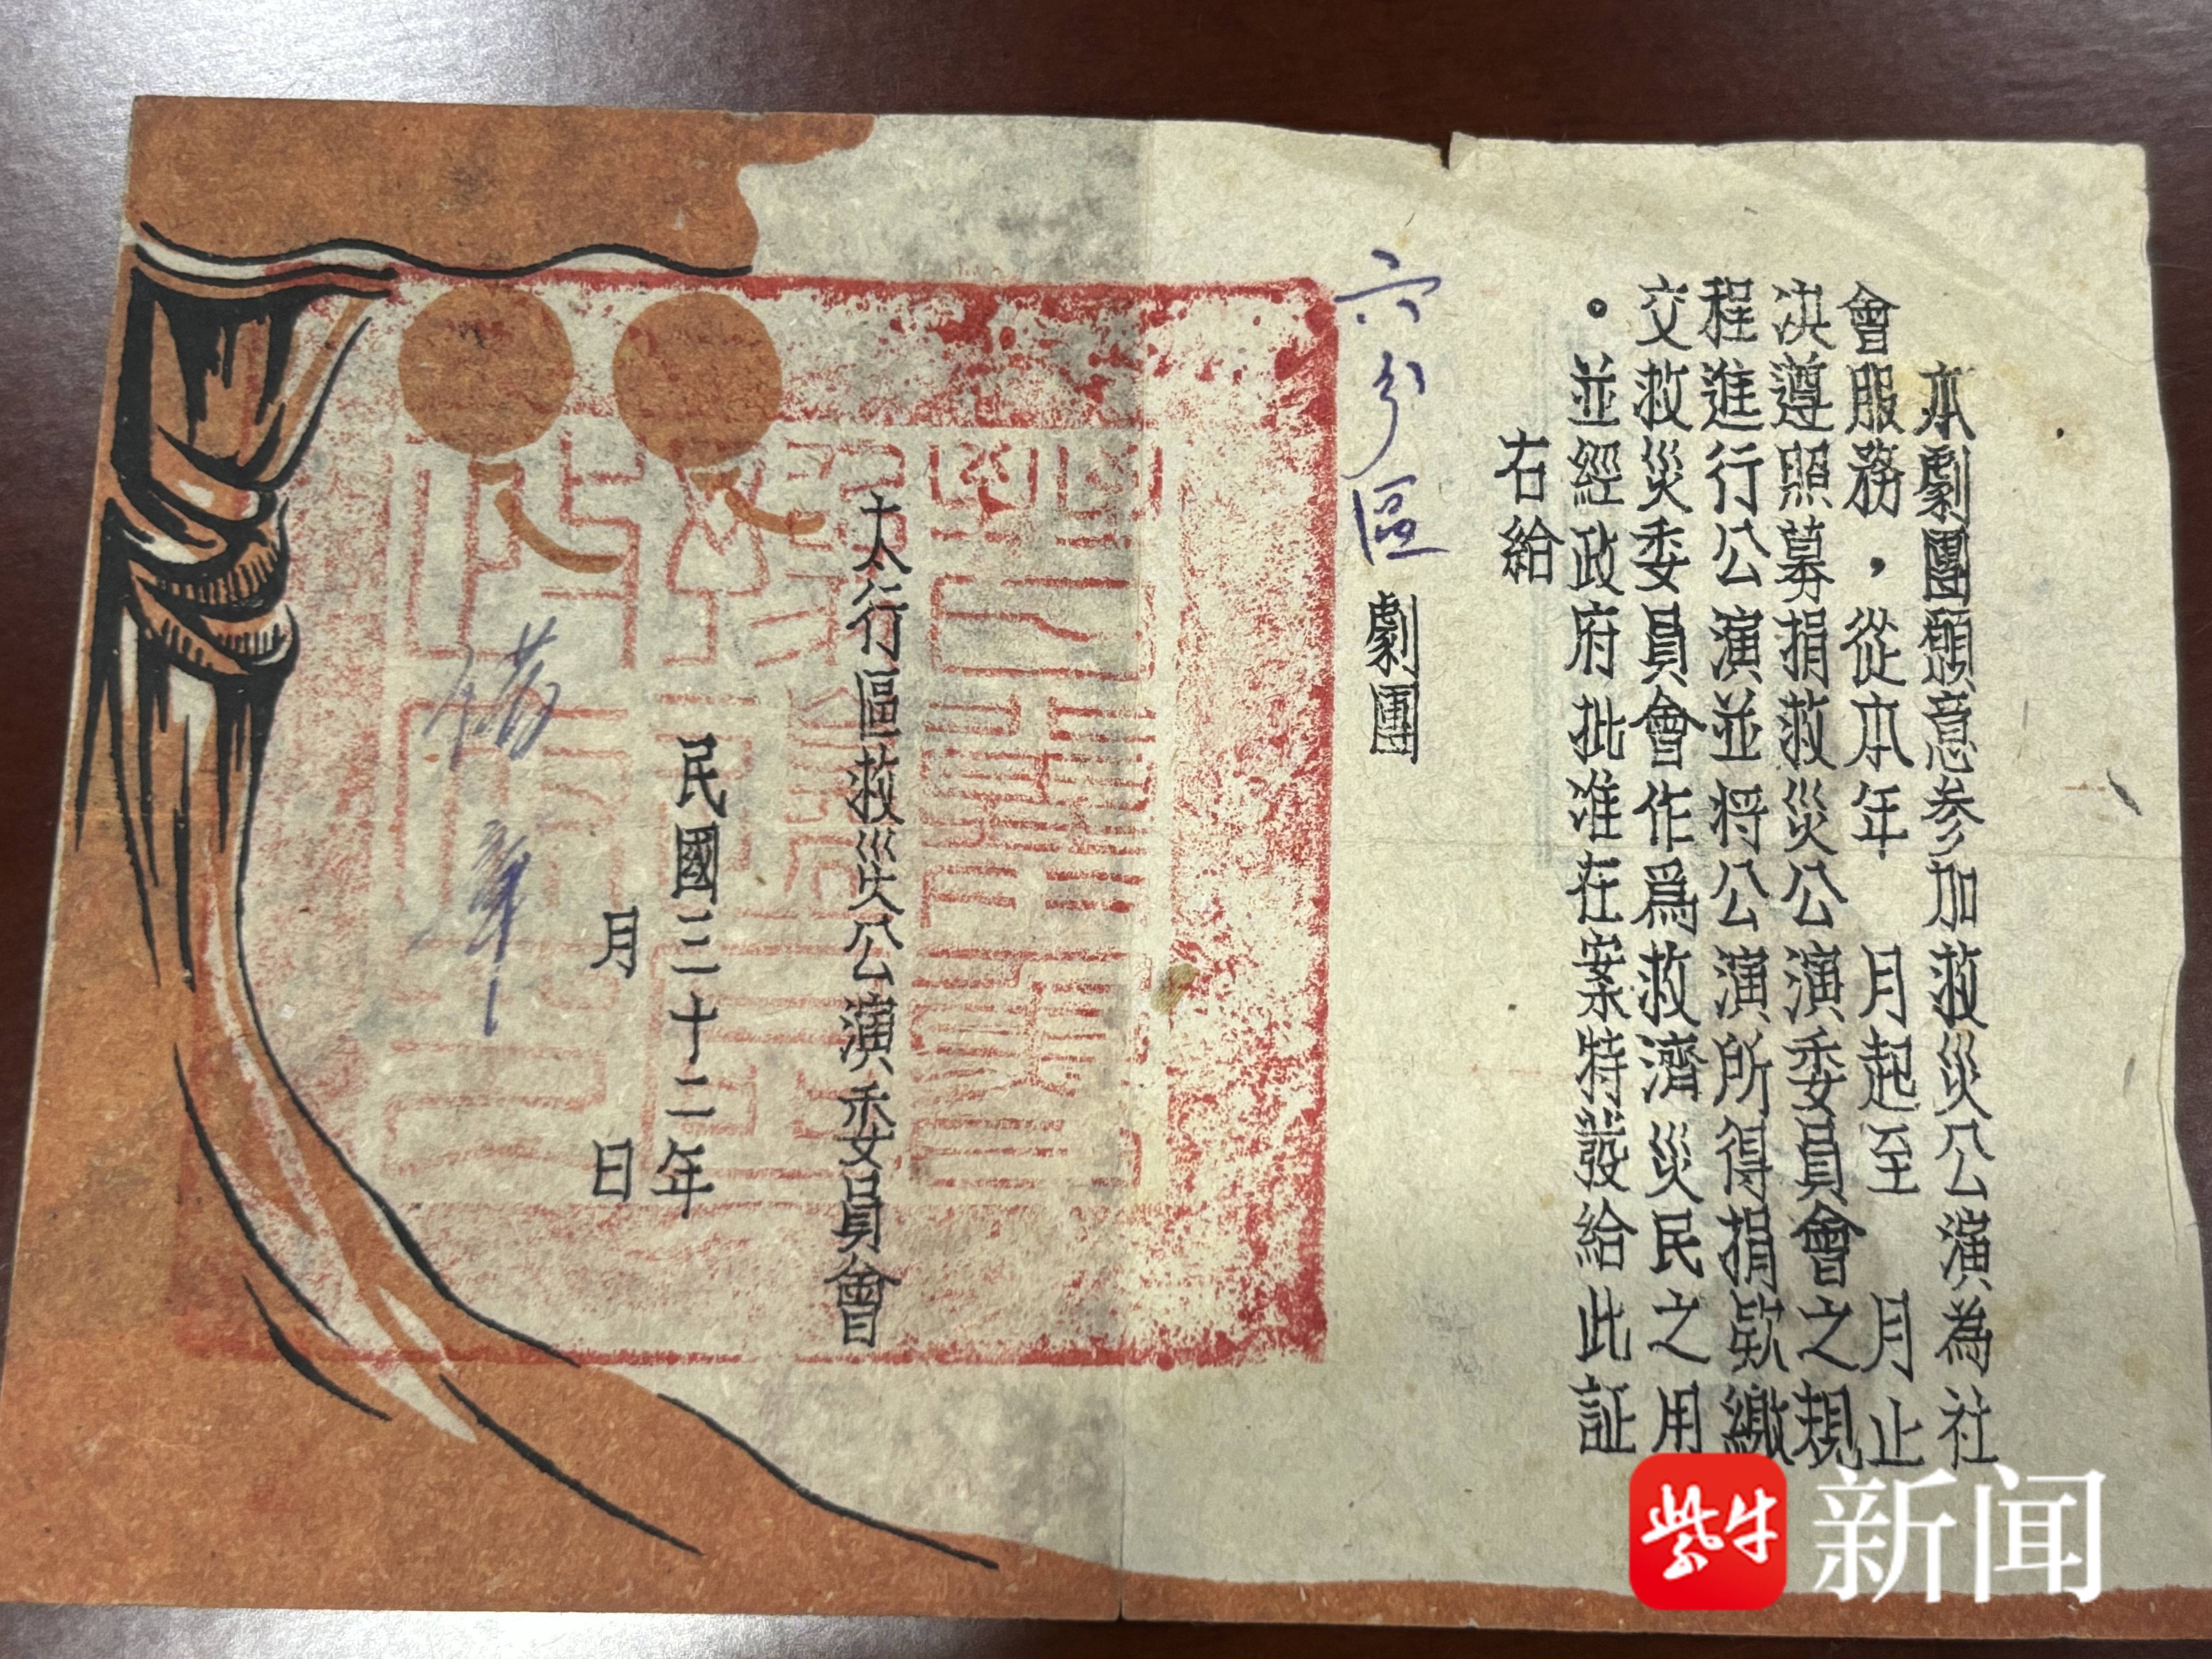 本劇團願意参加救災公演為社
會服務，從本年　月起至　月止
決遵照募捐救災公演委員會之規
程進行公演並将公演所得捐欵繳
交救災委員會作爲救濟災民之用
。並經政府批准在案特發給此証
右給
六分區劇團
太行區救災公演委員會
民國三十二年
月　日
紫牛新闻